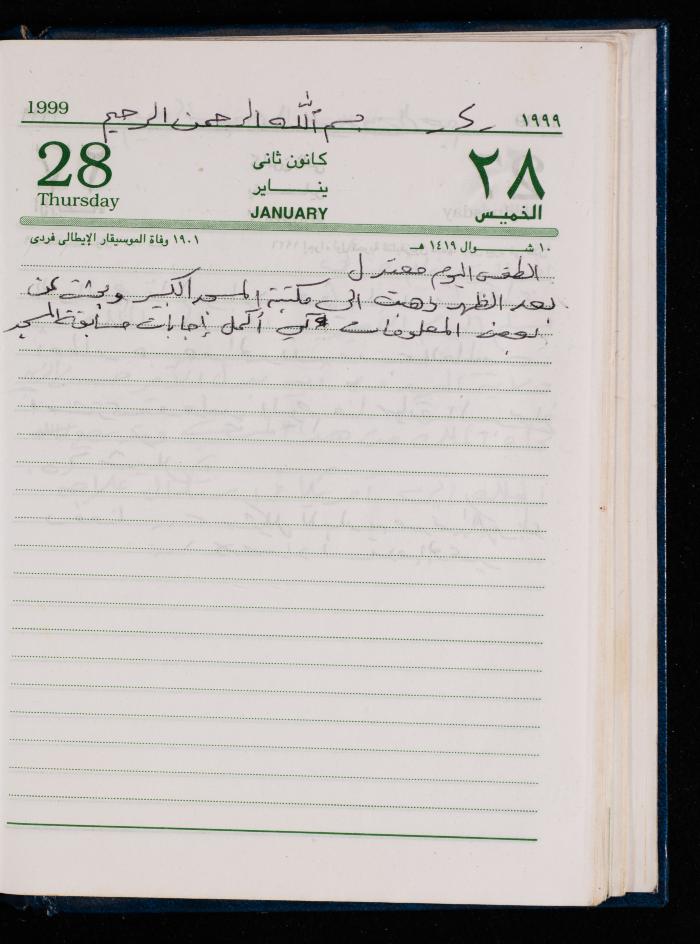 1999 بسم الله الرحمن الرحيم ١٩٩٩
28 كانون ثانى ٢٨
Thursday ينــاير الخميس
JANUARY
١٠ شــوال ١٤١٩ هـ ١٩٠١ وفاة الموسيقار الإيطالى فردى
الطقس اليوم معتدل
بعد الظهر ذهبت الى مكتبة المسجد الكبير وبحثت عن
بعض المعلومات لكي أكمل إجابات مسابقة المسجد